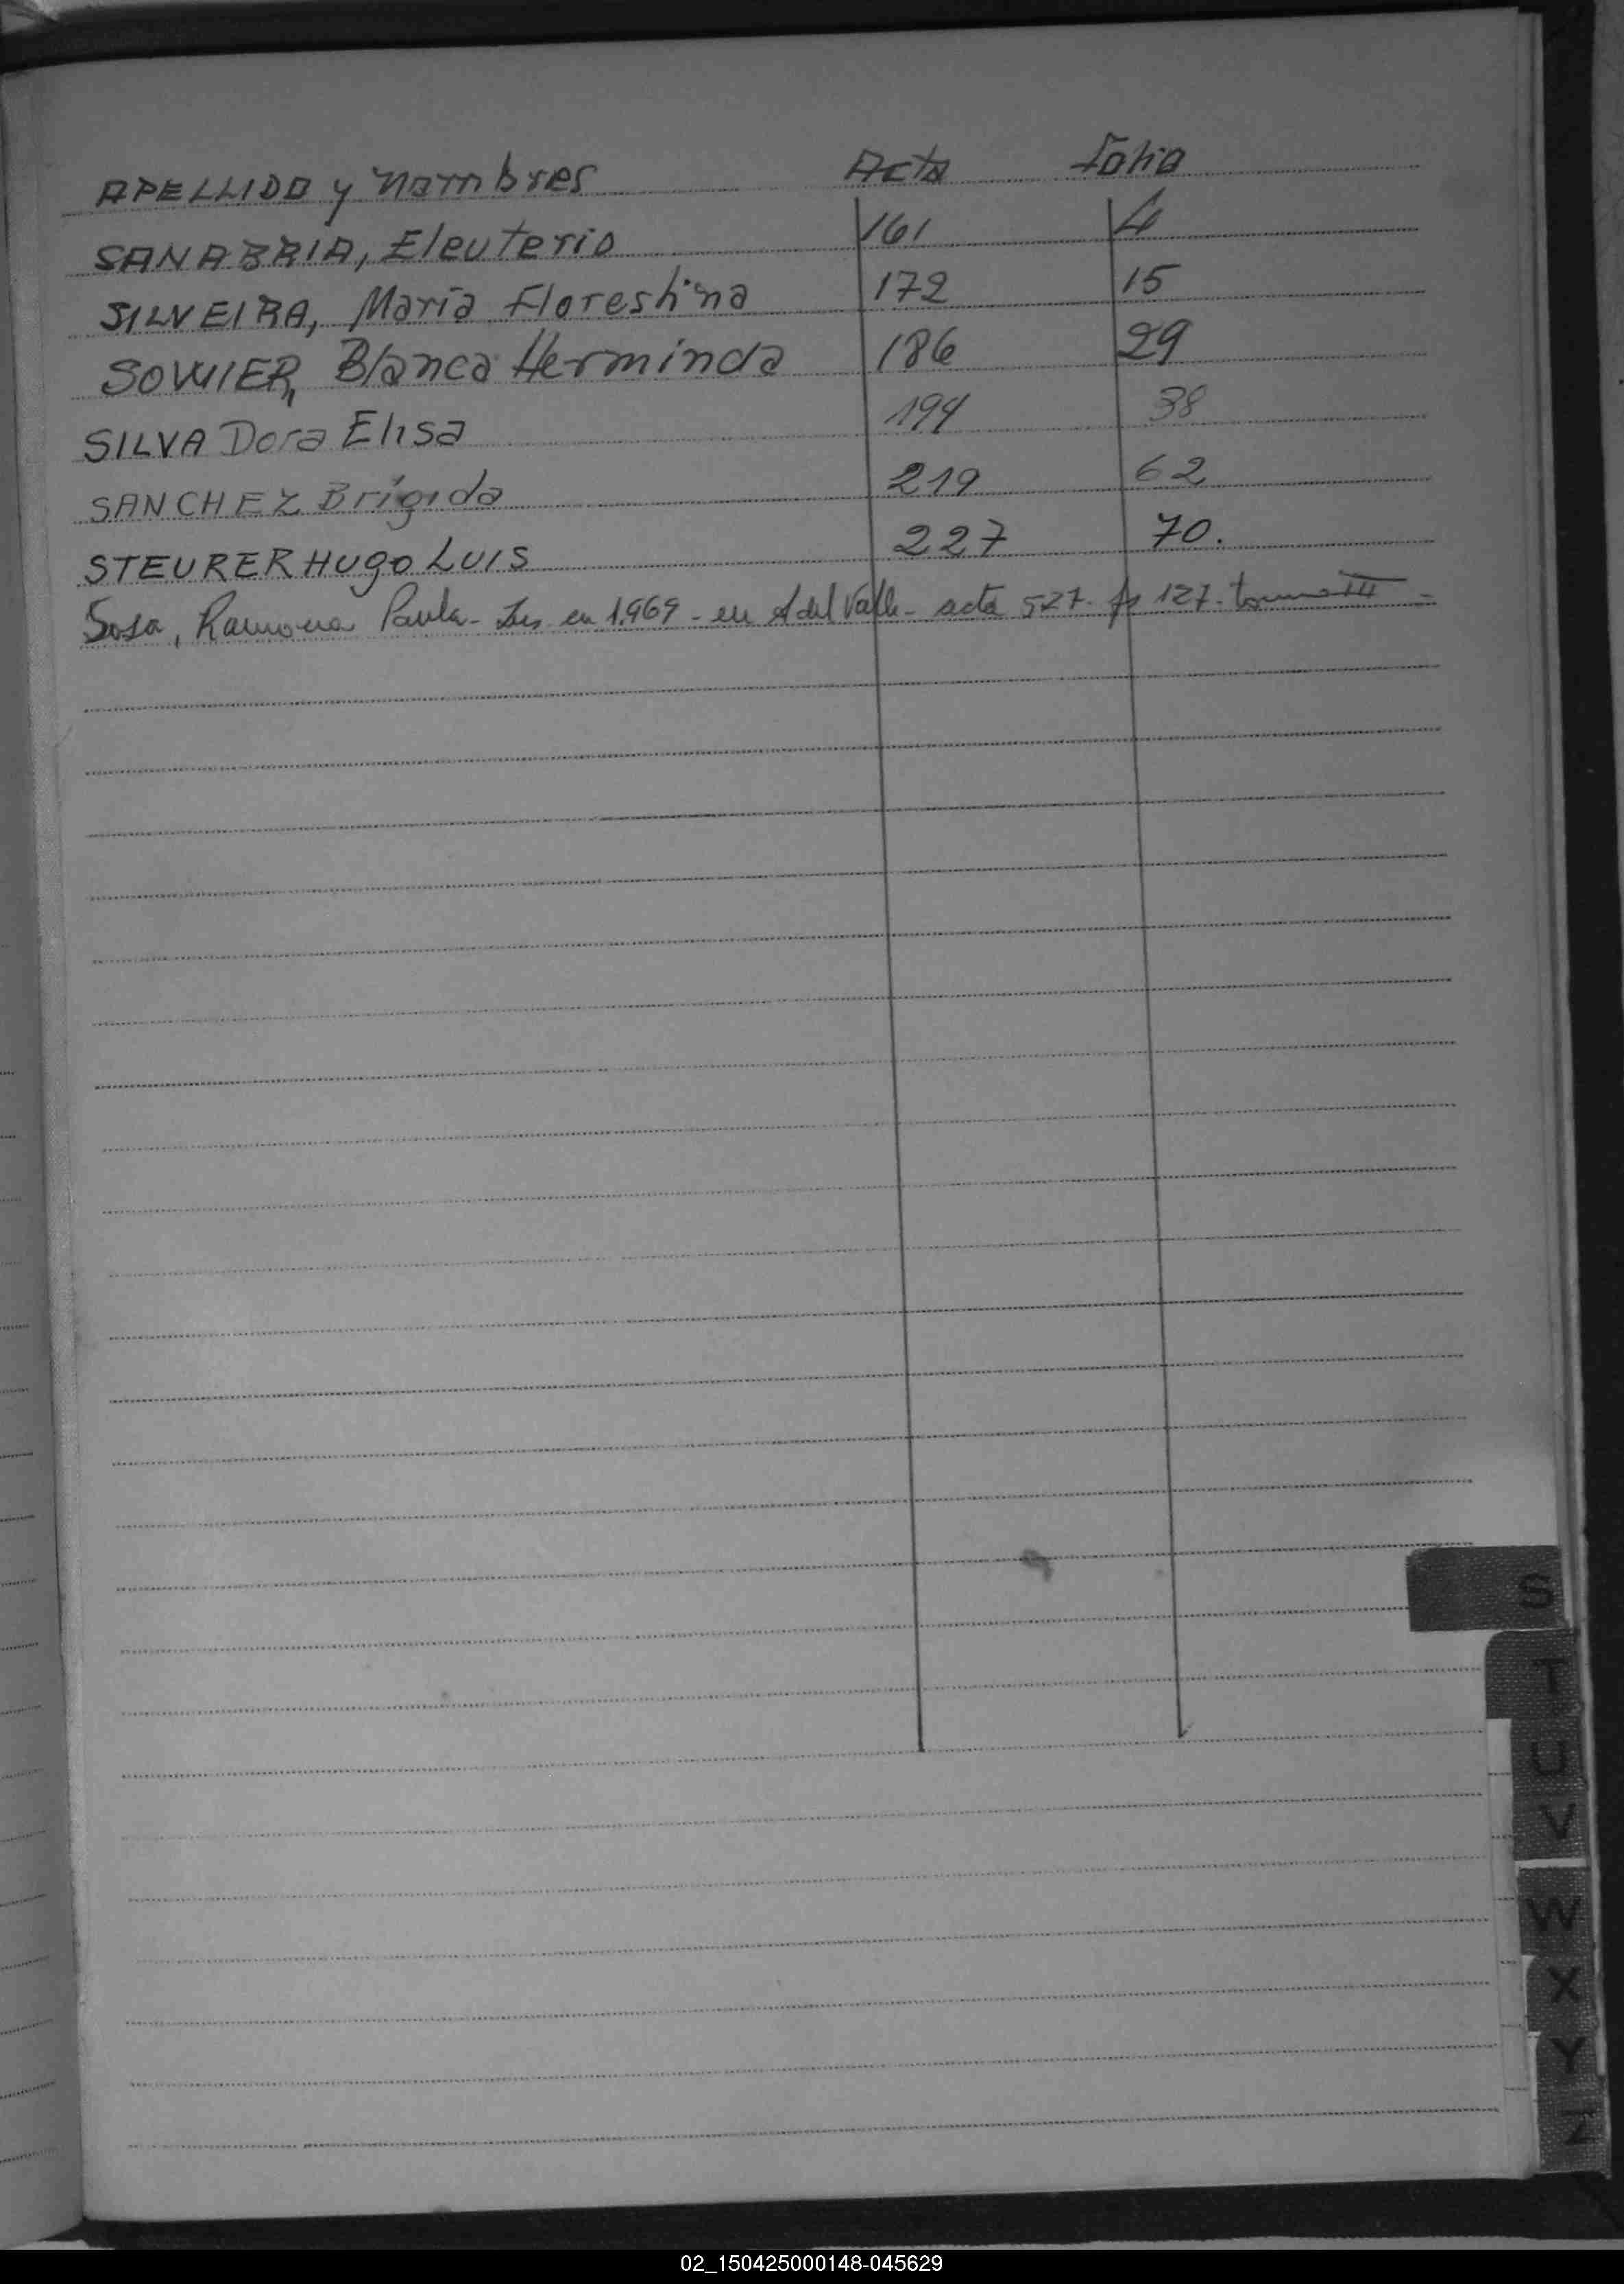 APELLIDO y nombres Acta Folio
SANABRIA, Eleuterio 161 4
SILVEIRA, María Florestina 172 15
SOWIER, Blanca Herminda 186 29
SILVA Dora Elisa 194 38
SANCHEZ Brígida 219 62
STEURER HUgo LUIS 227 70.
Sosa, Ramona Paula - en 1.969 - en A del Valle - acta 527. fs 127. tomo III -
S
T
U
V
W
X
Y
Z
02_150425000148-045629